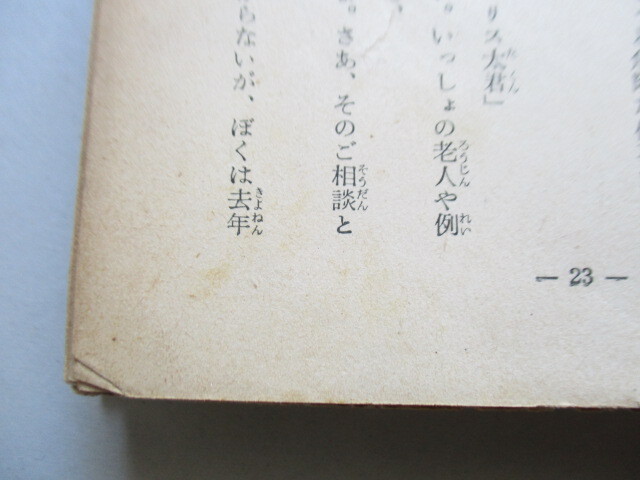 リス大君」
。いっしょの老人や例
。さあ、そのご相談と
らないが、ぼくは去年
— 23 —